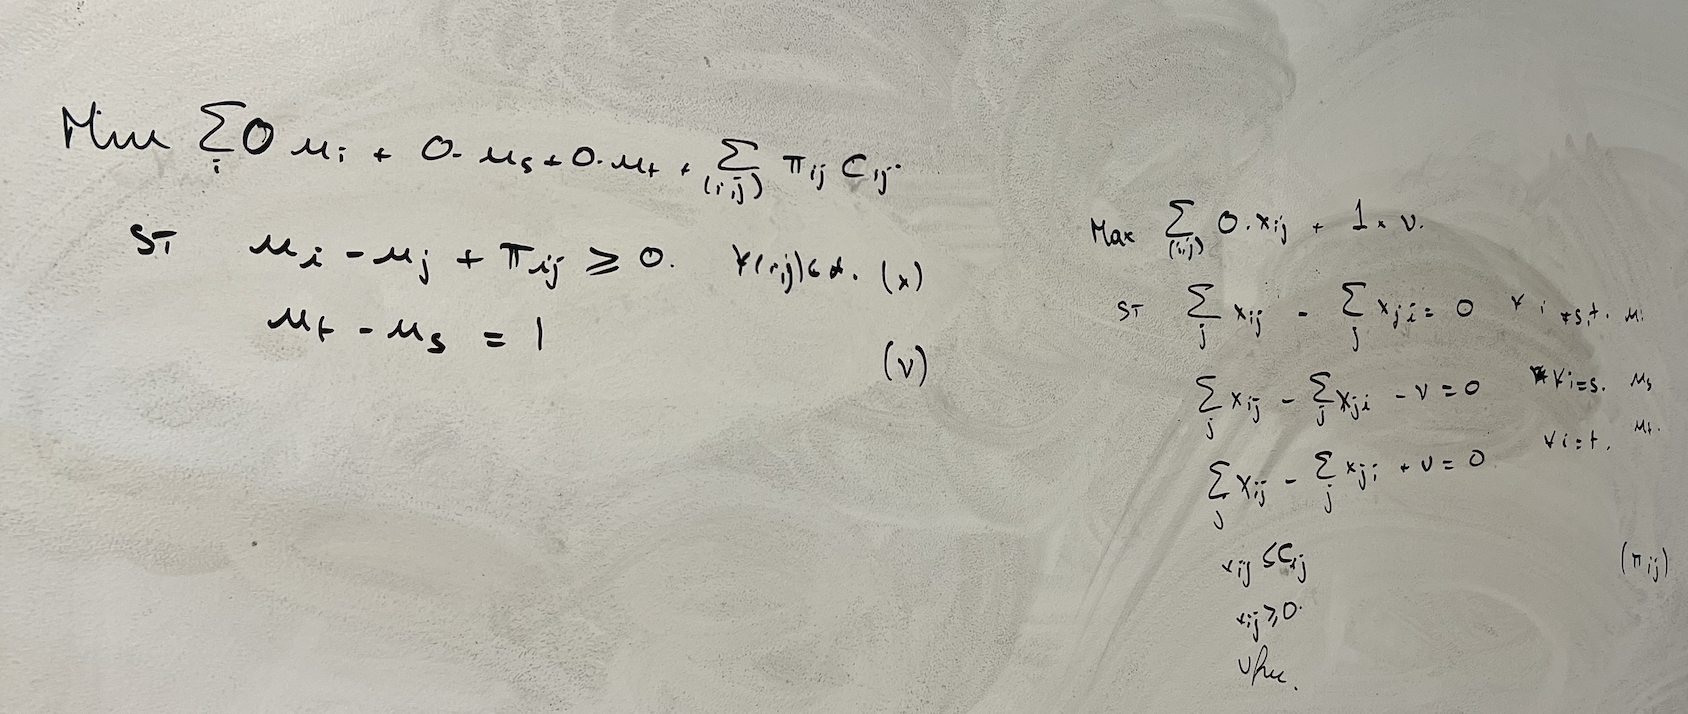 Min ∑_i 0 μ_i + 0·μ_s + 0·μ_t + ∑_(i,j) π_ij C_ij
ST μ_i - μ_j + π_ij ≥ 0. ∀(i,j)∈A. (x)
μ_t - μ_s = 1 (v)
Max ∑_(i,j) 0·x_ij + 1 × v.
ST ∑_j x_ij - ∑_j x_ji = 0 ∀ i ≠ s,t. μ_i
∑_j x_ij - ∑_j x_ji - v = 0 ∀ i=s. μ_s
∑_j x_ij - ∑_j x_ji + v = 0 ∀ i=t. μ_t.
x_ij ≤ C_ij (π_ij)
x_ij ≥ 0.
v free.